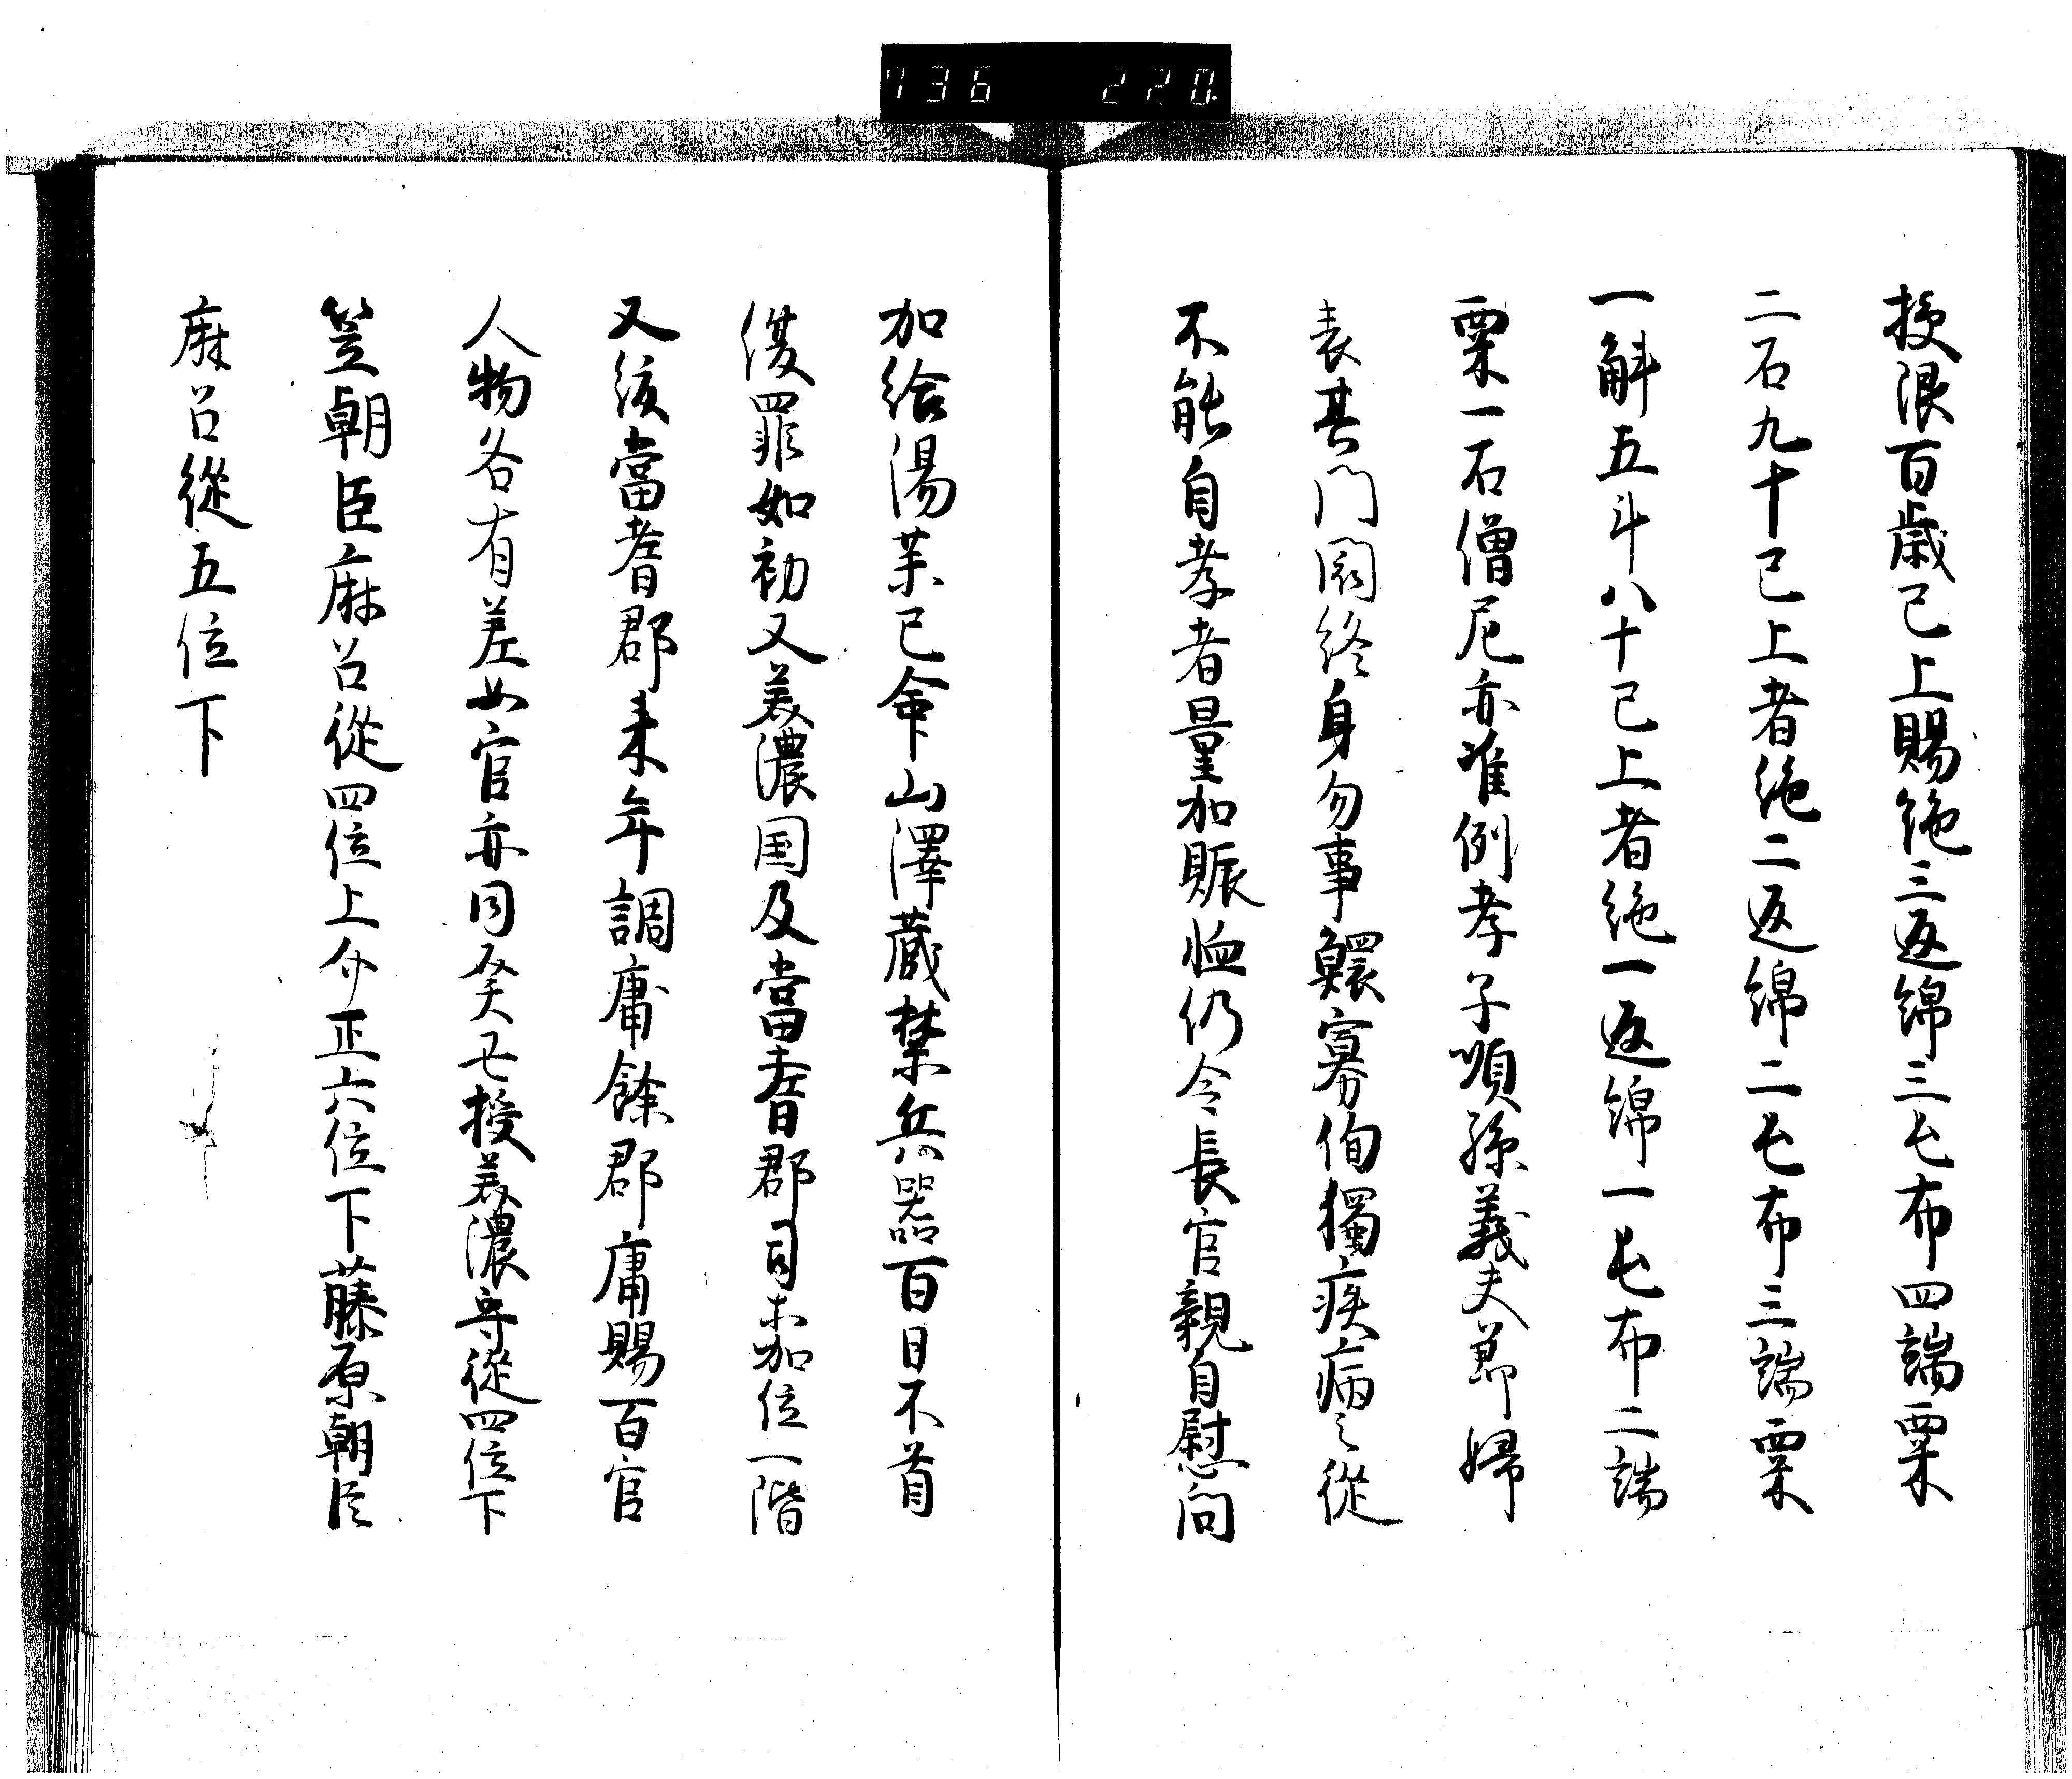 736 220
授限百歳已上賜絁三返綿三屯布四端粟
二石九十已上者絁二返綿二屯布三端粟
一斛五斗八十已上者絁一返綿一屯布二端
粟一石僧尼亦准例孝子順孫義夫節婦
表其門閭終身勿事鰥寡惸獨疾病之従
不能自孝者量加賑恤仍令長官親自慰问
加給湯茱已命山澤蔵禁兵器百日不首
復罪如初又美濃国及當耆郡司木加位一階
又復當耆郡来年調庸餘郡庸賜百官
人物各有差女官亦同癸丑授美濃守從四位下
笠朝臣麻呂從四位上介正六位下藤原朝臣
麻呂從五位下